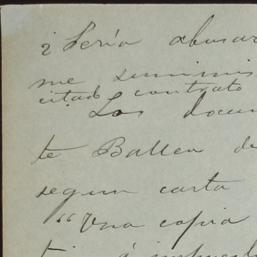 ¿ Sería abusar
me suminis
citado contrato
Los docum
te Ballen de
segun carta
"Una copia